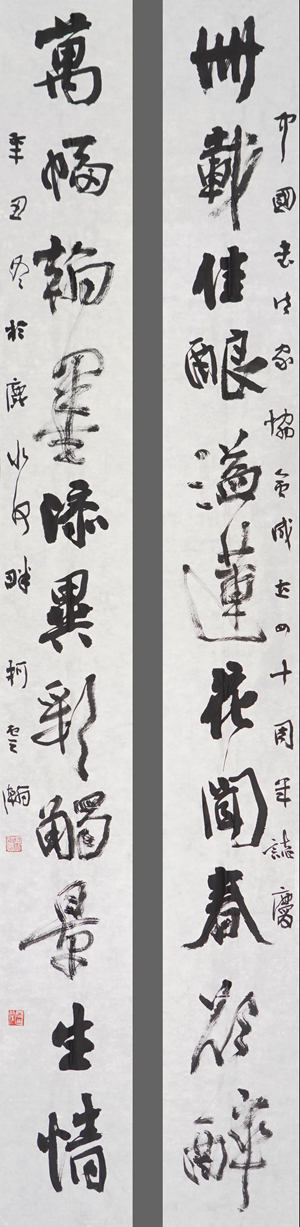 中國書法家協會成立四十周年誌慶
卌載佳釀溢蓮花聞春欲醉
萬幅翰墨添異彩觸景生情
辛丑冬於鹿水河畔柯雲瀚